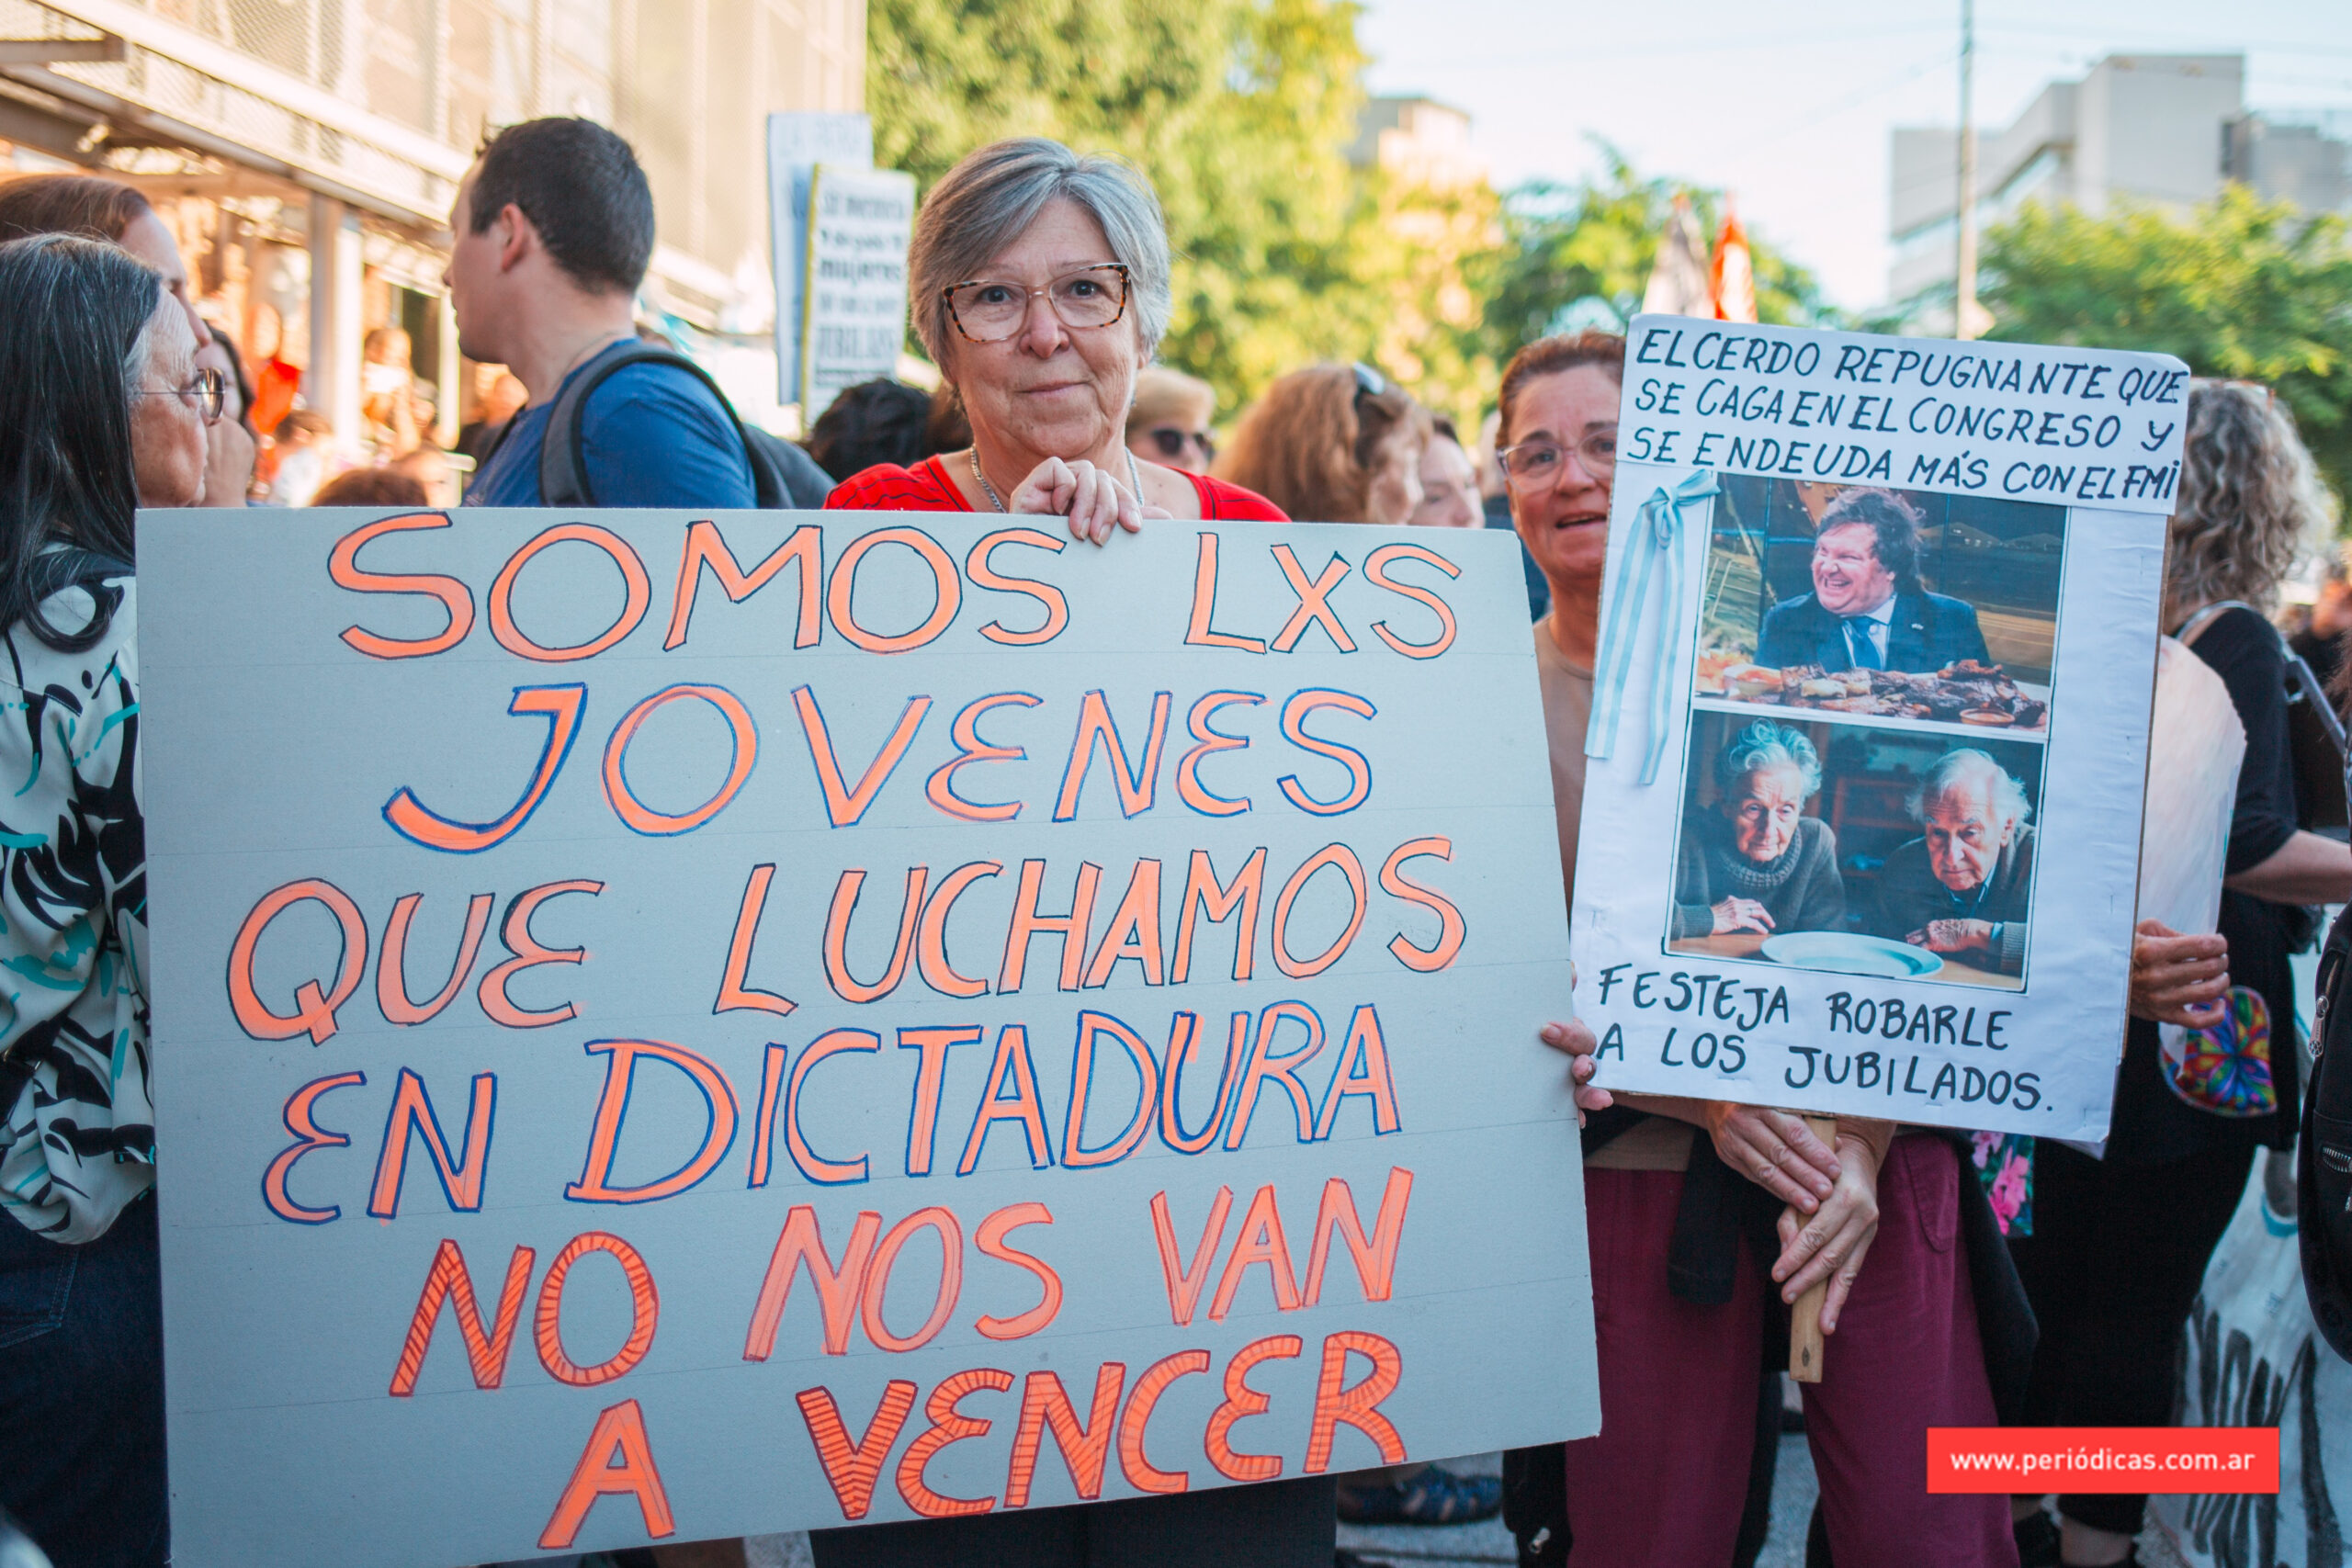 SOMOS LXS
JOVENES
QUE LUCHAMOS
EN DICTADURA
NO NOS VAN
A VENCER
EL CERDO REPUGNANTE QUE
SE CAGA EN EL CONGRESO Y
SE ENDEUDA MÁS CON EL FMI
FESTEJA ROBARLE
A LOS JUBILADOS.
mujeres
www.periódicas.com.ar